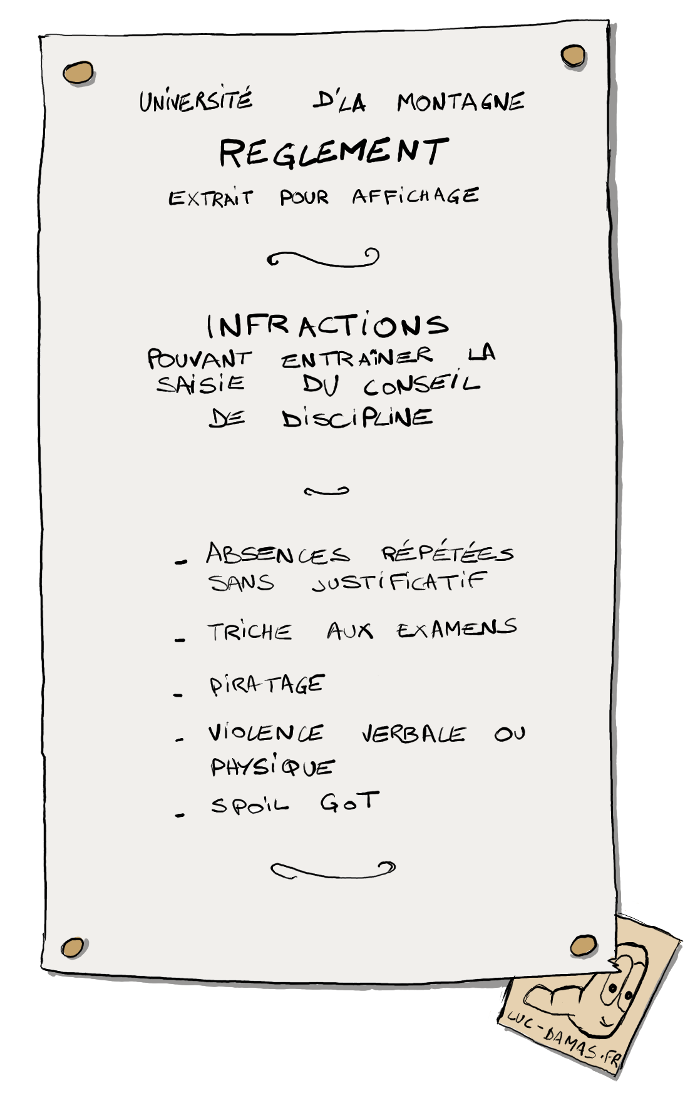 UNiVERSiTÉ D'LA MONTAGNE
REGLEMENT
EXTRAiT POUR AFFiCHAGE
INFRACTiONS
POUVANT ENTRAîNER LA
SAiSiE DU CONSEiL
DE DiSCiPLiNE
- ABSENCES RÉPÉTÉES
SANS JUSTiFiCATiF
- TRiCHE AUX EXAMENS
- PiRATAGE
- ViOLENCE VERBALE OU
PHYSiQUE
- SPOiL GoT
LUC-DAMAS.FR